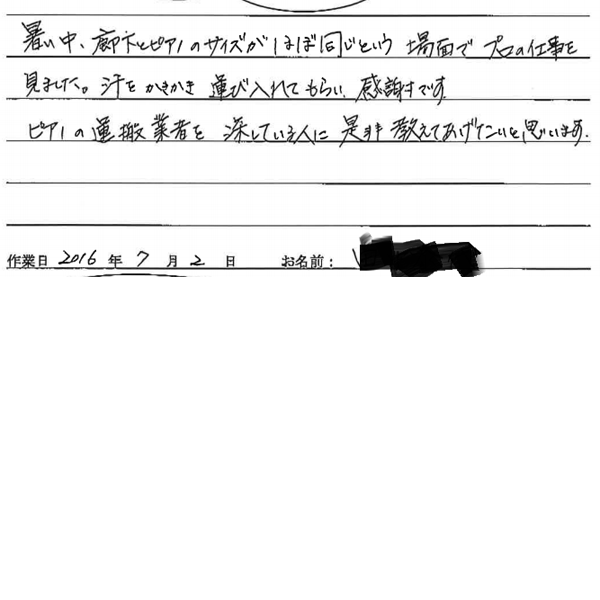 暑い中、廊下とピアノのサイズがほぼ同じという 場面で プロの仕事を
見ました。汗を かきかき 運び入れて もらい、感謝です。
ピアノの運搬業者を 探している人に 是非 教えてあげたいと思います。
作業日 2016 年 7 月 2 日 お名前：